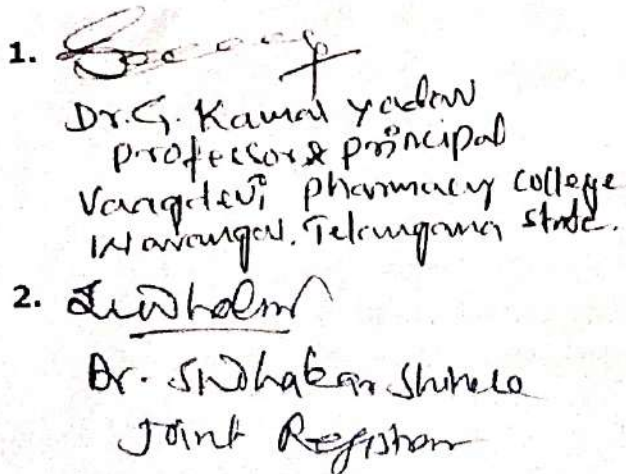 1.
Dr. G. Kamal Yadav
Professor & principal
Vaagdevi pharmacy college
Warangal. Telangana state.
2.
Dr. Sudhakar
Joint Registrar